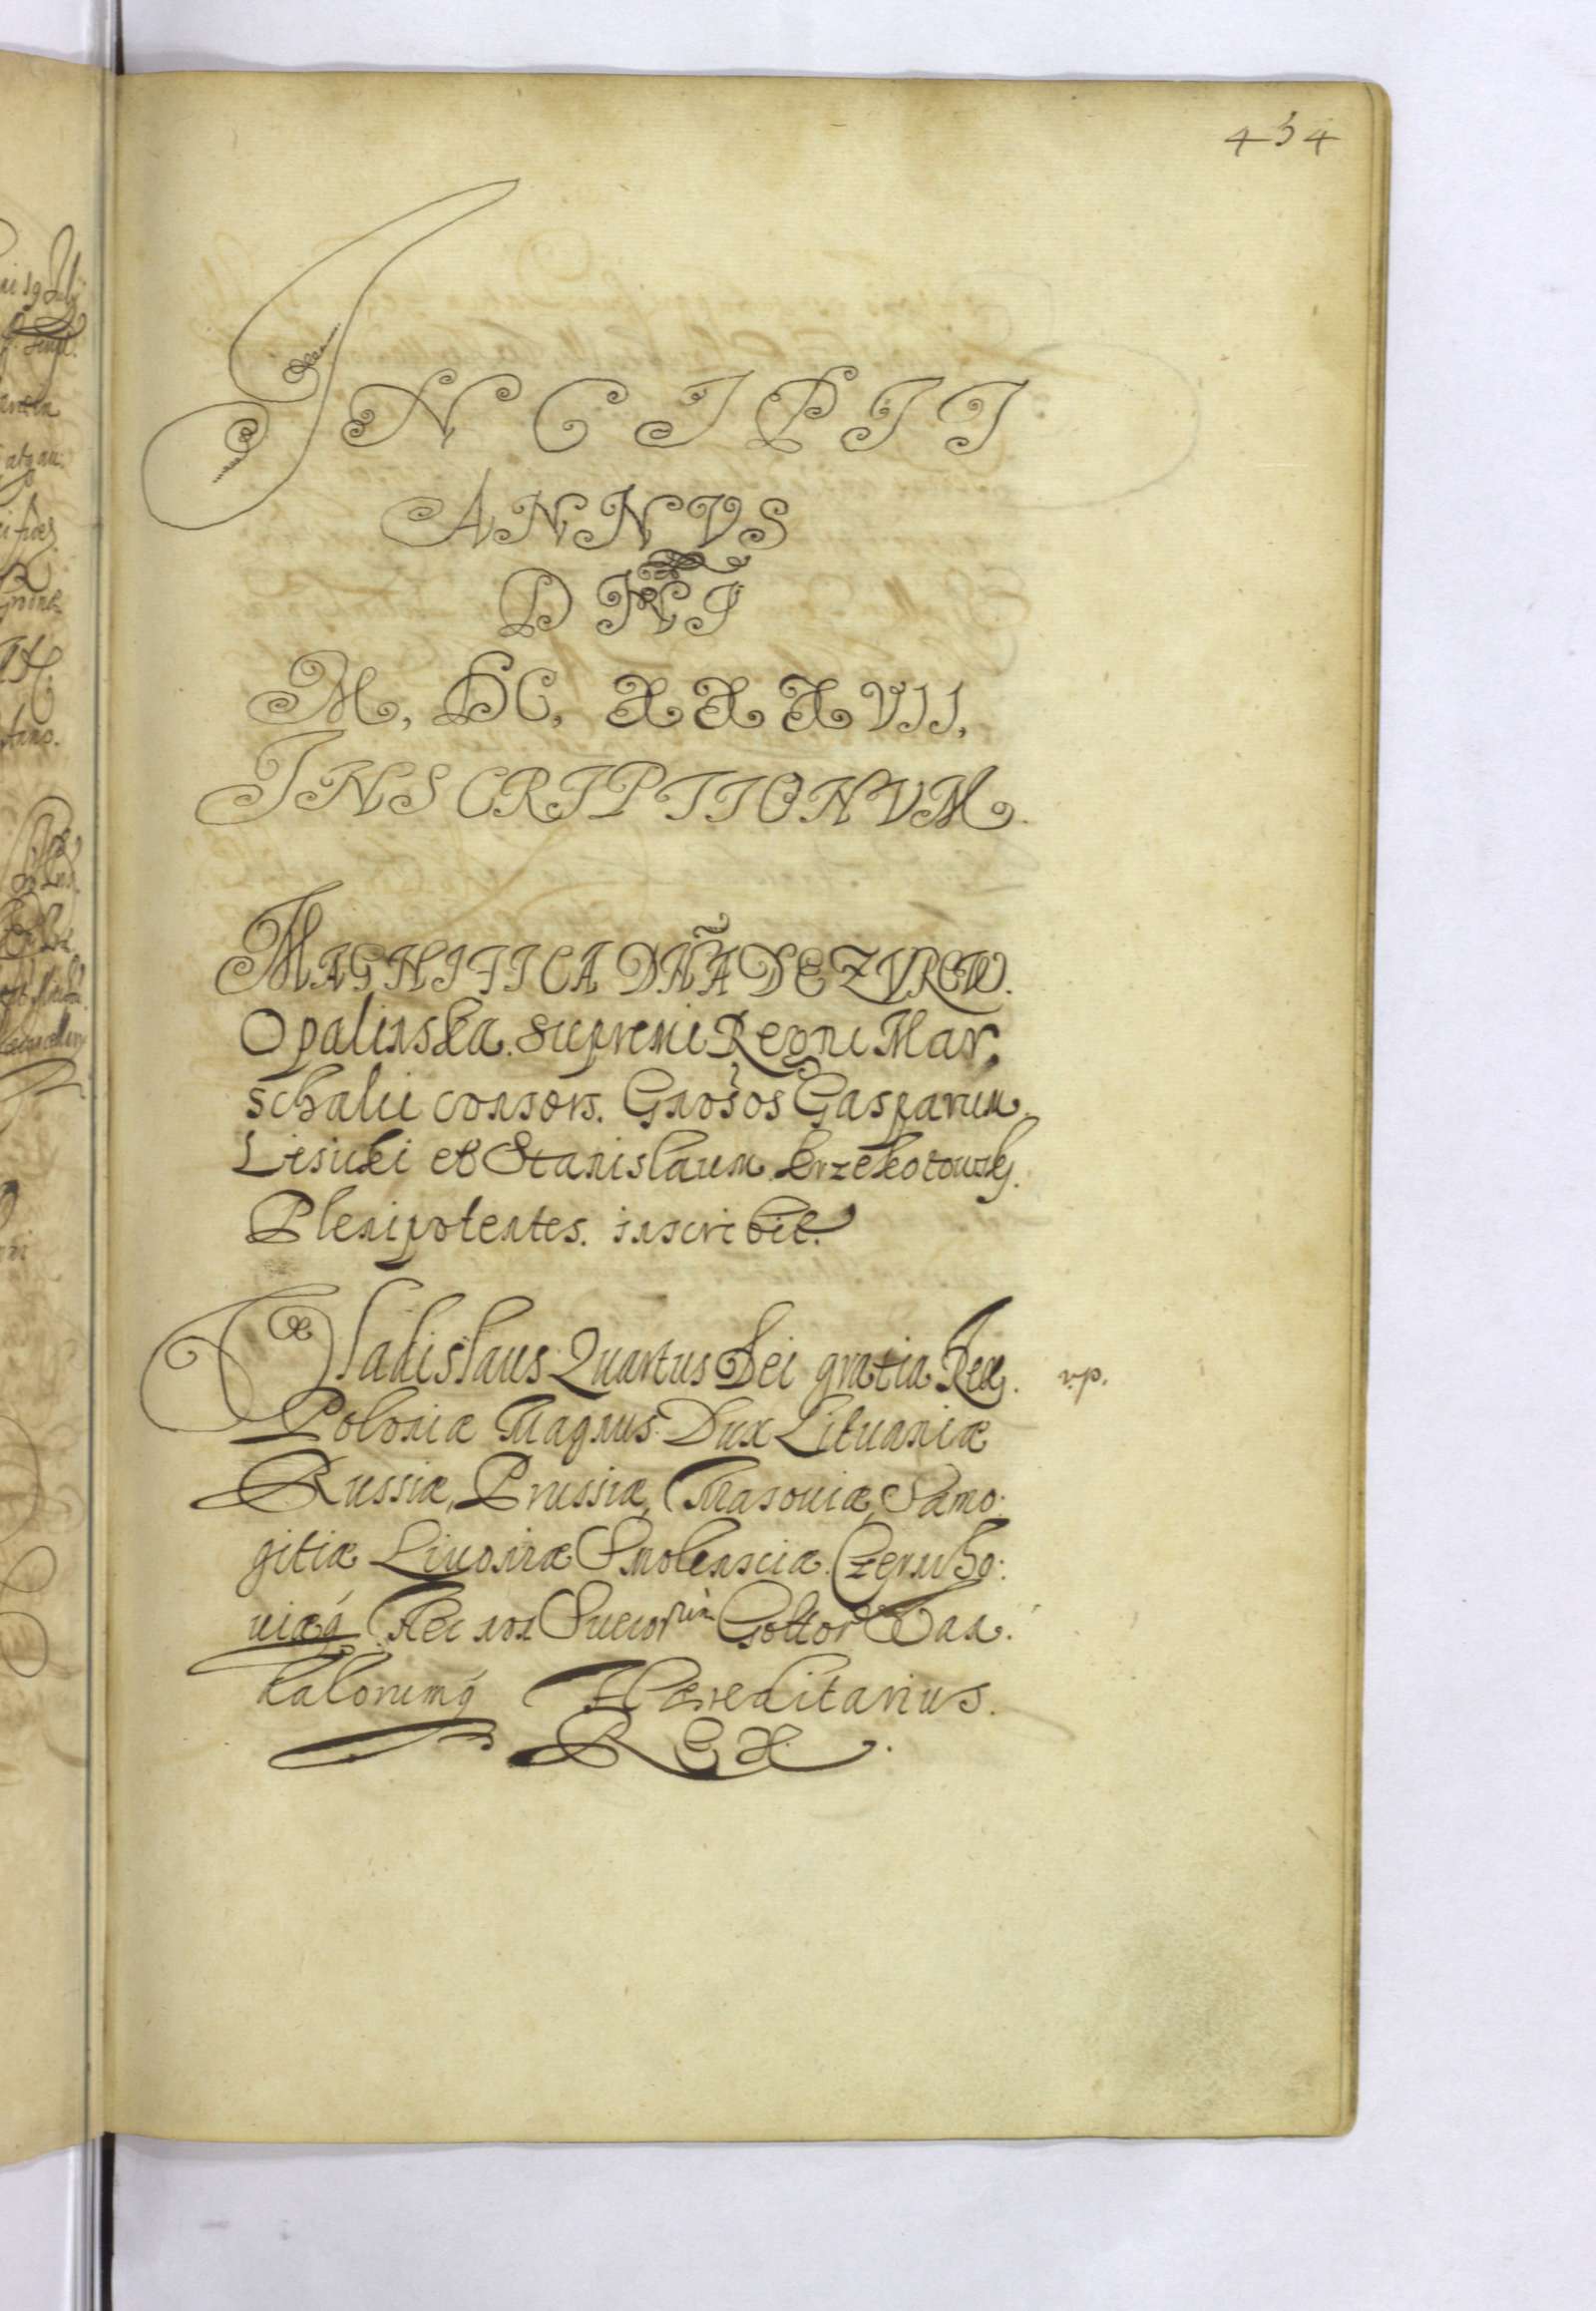 454
INCIPIT
ANNVS
DNI
M, DC, XXXVII,
INSCRIPTIONVM.
MAGNIFICA DÑA DE ZVROW.
Opalinska. Supremi Regni Mar,
schalii consors. Gnosos Gasparum
Lisicki et Stanislaum Krzekotowsky.
Plenipotentes. inscribit.
Vladislaus Quartus Dei gratia Rex. rp.
Poloniæ Magnus Dux Lituaniæ
Russiæ, Prussiæ, Masouiæ, Samo:
gitiæ Liuoniæ Smolensciæ. Czerniho:
uiæq Nec non Sueco rum Gottor Van:
dalorumq Hæreditarius.
REX.